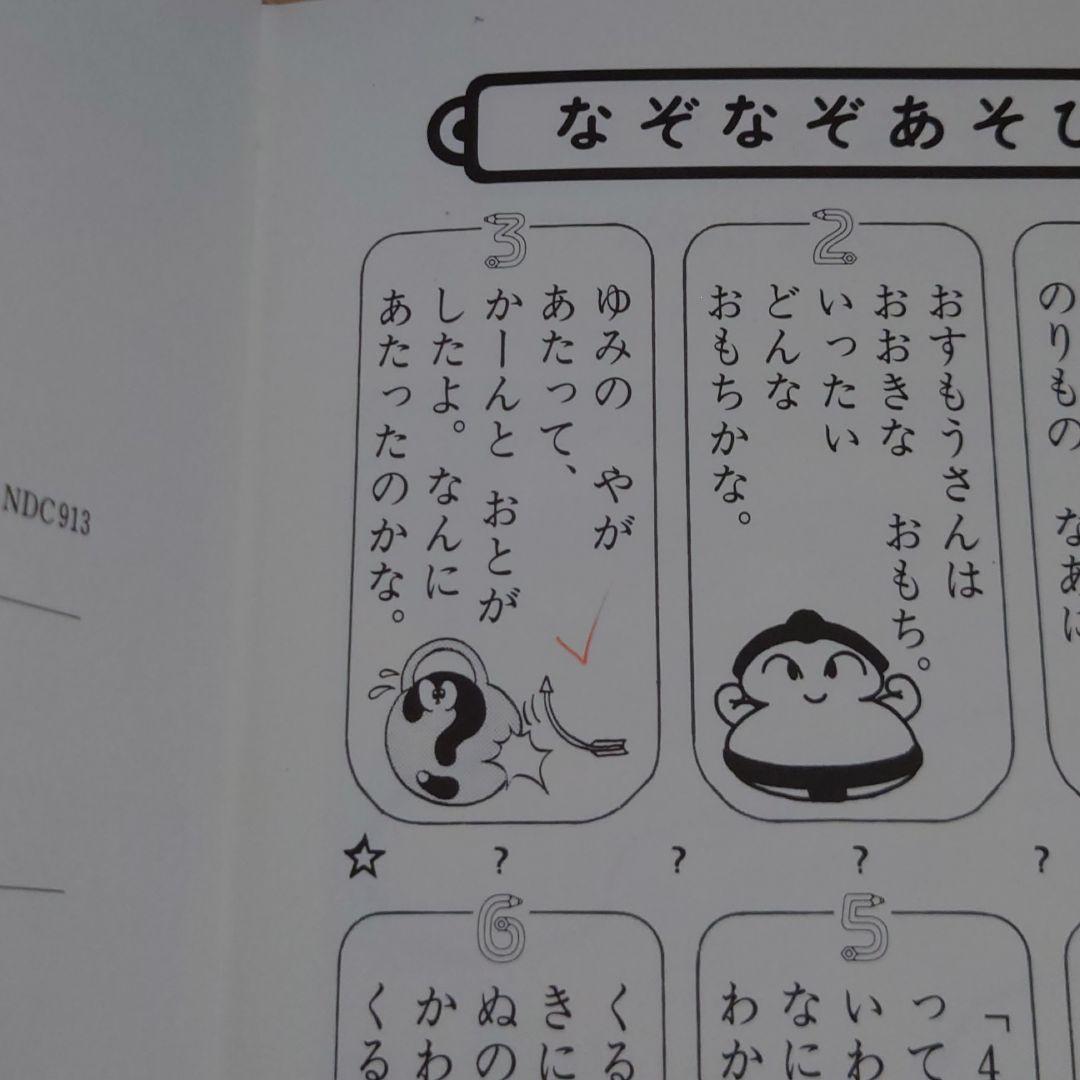 なぞなぞあそ
のりもの
2
おすもうさんは
おおきな おもち。
いったい
どんな
おもちかな。
3
ゆみの やが
あたって、
かーんと おとが
したよ。 なんに
あたったのかな。
?
☆ ? ? ? ?
5
「4
って
いわ
なに
わか
6
くる
きに
ぬの
かわ
くる
NDC913